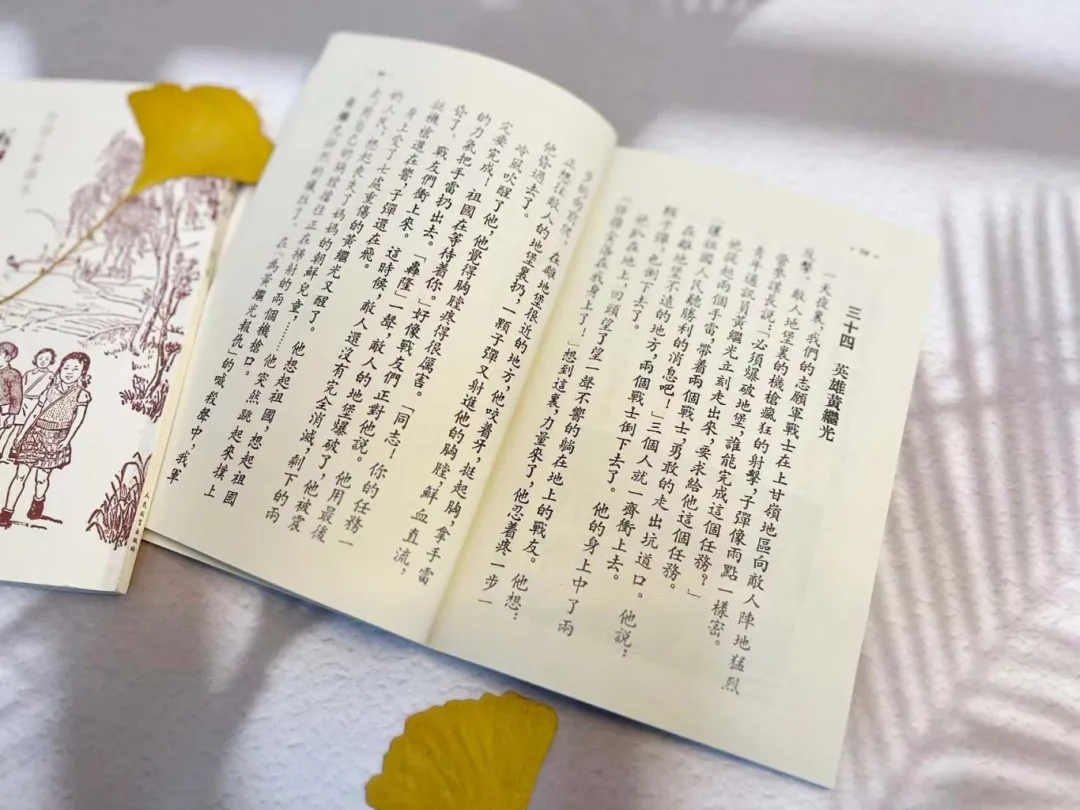 三十四 英雄黃繼光
一天夜裏,我們的志願軍戰士在上甘嶺地區向敵人陣地猛烈
反擊。敵人地堡裏的機槍瘋狂的射擊,子彈像雨點一樣密。
營參謀長說:「必須爆破地堡,誰能完成這個任務?」
青年通訊員黃繼光立刻走出來,要求給他這個任務。
他提起兩個手雷,帶着兩個戰士,勇敢的走出坑道口。他說:
「讓祖國人民聽勝利的消息吧!」三個人就一齊衝上去。
在離地堡不遠的地方,兩個戰士倒下去了。他的身上中了兩
顆子彈,也倒下去了。
他趴在地上,回頭望了望一聲不響的躺在地上的戰友。他想:
「任務落在我身上了!」想到這裏,力量來了,他忍着疼一步一
步的向前爬。在離地堡很近的地方,他咬着牙,挺起胸,拿手雷
正想往敵人的地堡裏扔,一顆子彈又射進他的胸膛,鮮血直流,
他昏過去了。
冷風吹醒了他,他覺得胸膛疼得很厲害。「同志!你的任務一
定要完成!祖國在等待着你。」好像戰友們正對他說。他用最後
的力氣把手雷扔出去。「轟隆」一聲,敵人的地堡爆破了,他被震
昏了。
戰友們衝上來。這時候,敵人還沒有完全消滅,剩下的兩
挺機槍還在響,子彈還在飛。
身上受了七處重傷的黃繼光又醒了。他想起祖國,想起祖國
的人民,想起失去了媽媽的朝鮮兒童……他突然跳起來撲上
去,用自己的胸膛擋住正在掃射的兩個機槍口。
黃繼光的犧牲了。在「為黃繼光報仇」的喊殺聲中,我軍
人民教育出版社